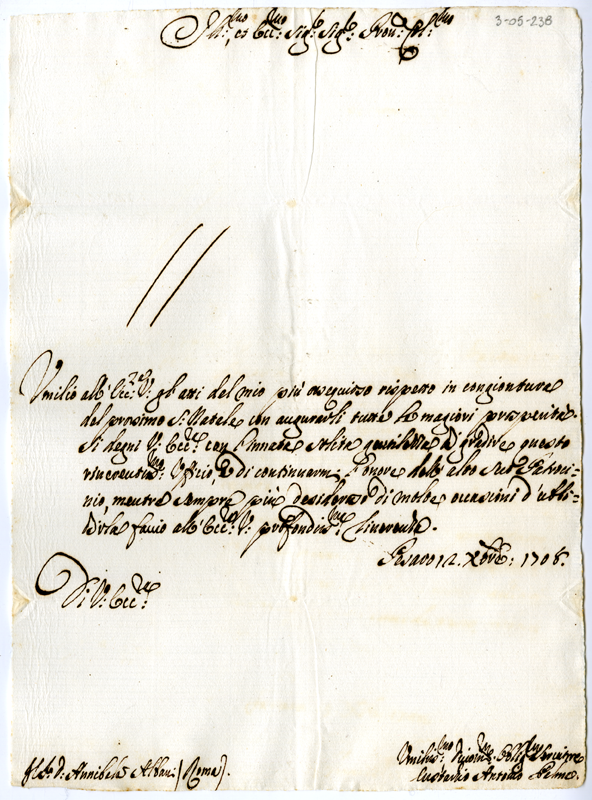 3-05-238
Ill:mo, et Ecc:mo Sig:r Sig:r Pron: Col:mo
Umilio all' Ecc:za V: gl' atti del mio più ossequioso rispetto in congionture
del prossimo S: Natale con augurarli tutte le magiori prosperità.
Si degni V: Ecc:za con l'innata solita gentilezza di gradire questo
riverentis:mo Officio, e di continuarmi l'onore dell' alto suo Patroci-
nio, mentre sempre più desideroso di molte occasioni d'ubbi-
dirla faccio all' Ecc:za V: profondis:ma riverenza.
Pesaro 12. Xbre: 1708.
Di V: Ecc:za
D: Annibale Albani (Roma).
Umilis:mo Divotis:mo Obblig:mo Servitore
Eustachio Antonio